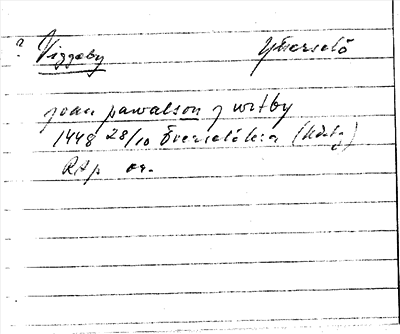 ? Viggeby Ytterselö
joan pawalson j witby
1448 28/10 Överselö k:a
RAp or.